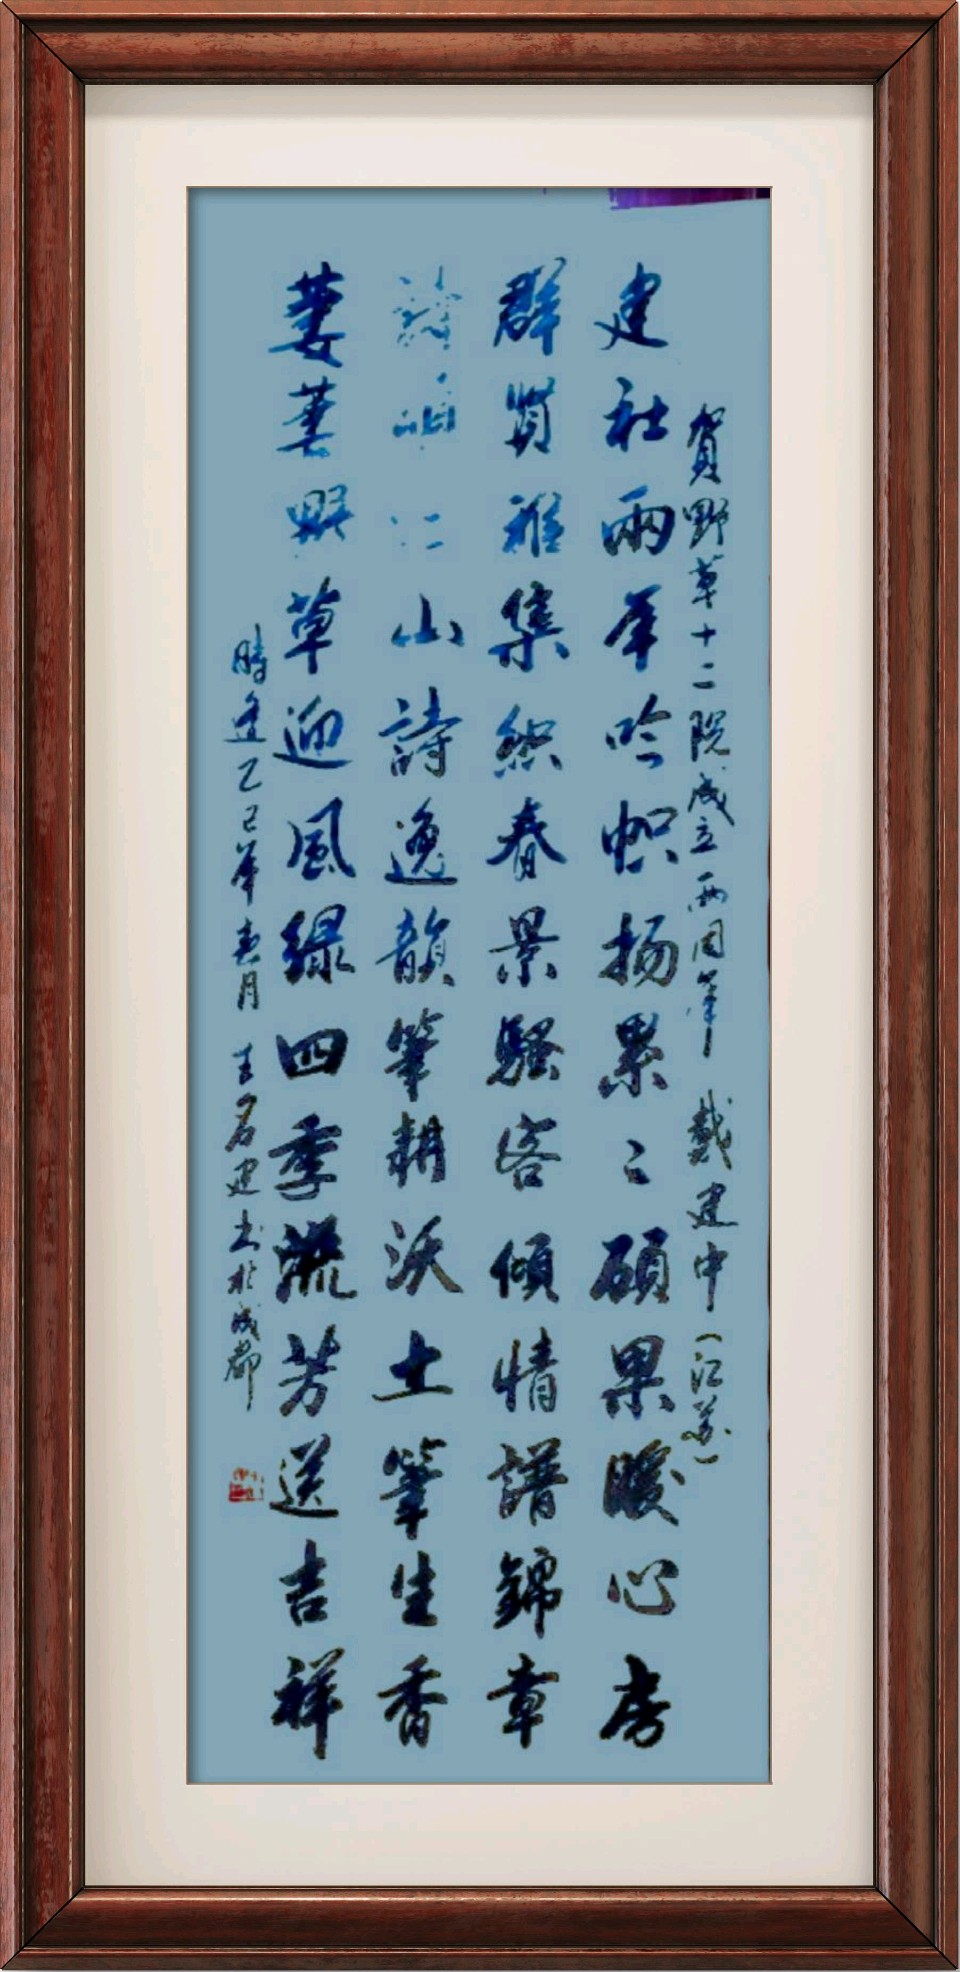 賀野草十二院成立兩周年 戴建中（江苏）
建社兩年吟帜扬累々碩果暖心房
群賢雅集织春景騷客傾情譜錦章
詩山詩逸韻筆耕沃土筆生香
萋萋野草迎風綠四季流芳送吉祥
時逢乙巳年春月 王名建书於成都